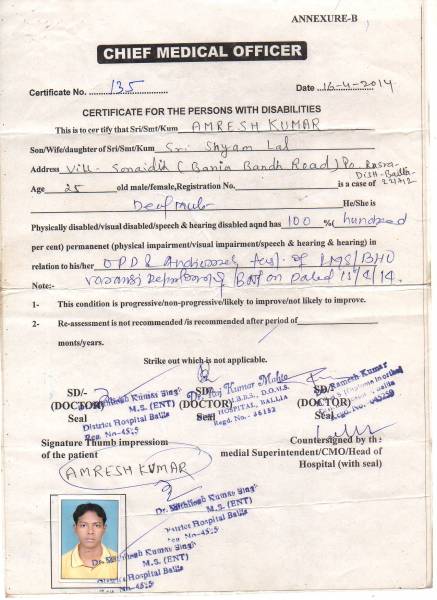 ANNEXURE-B
CHIEF MEDICAL OFFICER
Certificate No. 135 Date 16-4-2014
CERTIFICATE FOR THE PERSONS WITH DISABILITIES
This is to certify that Sri/Smt/Kum AMRESH KUMAR
Son/Wife/daughter of Sri/Smt/Kum Sri Shyam Lal
Address Vill- Sonaidih (Bania Bandh Road) Po. Rasra-
Distt-Ballia
Age 25 old male/female, Registration No. is a case of 221712
Deaf mute He/She is
Physically disabled/visual disabled/speech & hearing disabled aqnd has 100 %( hundred
per cent) permanenet (physical impairment/visual impairment/speech & hearing & hearing) in
relation to his/her OPD & test of IMS/BHU
Note:- Dated 11/4/14.
1- This condition is progressive/non-progressive/likely to improve/not likely to improve.
2- Re-assessment is not recommended /is recommended after period of
monts/years.
Strike out which is not applicable.
SD/- SD/- SD/-
(DOCTOR) (DOCTOR) (DOCTOR)
Seal Seal Seal
Dr. Mithilesh Kumar Singh
M.S. (ENT)
District Hospital Ballia
Reg. No-4525
Dr. Raj Kumar Mahto
M.B.B.S., D.O.M.S.
HOSPITAL, BALLIA
Regd. No.- 36152
Dr. Ramesh Kumar
Signature Thumb impression
of the patient
Countersigned by the
medial Superintendent/CMO/Head of
Hospital (with seal)
AMRESH KUMAR
Dr. Mithilesh Kumar Singh
M.S. (ENT)
District Hospital Ballia
Reg. No-4525
Dr. Mithilesh Kumar Singh
M.S. (ENT)
District Hospital Ballia
Reg. No-4525